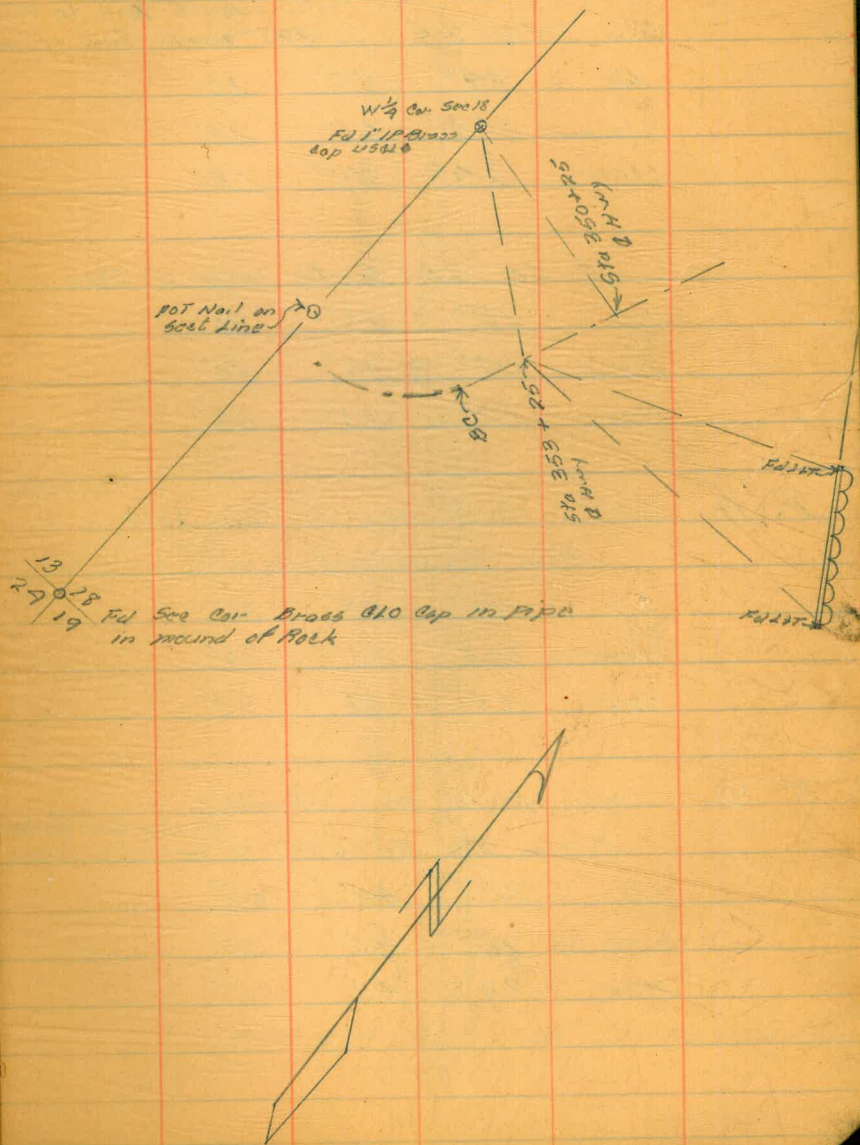 W 1/4 Cor Sec 18
Fd 1" IP Brass
Cap USGLO
Sta 350+25
¢ Hwy
POT Nail on
Sect Line
BC
Sta 353 + 25
¢ Hwy
Fd L&T
13
24 18
19
Fd Sec Cor Brass GLO Cap in pipe
in mound of Rock
Fd L&T
N